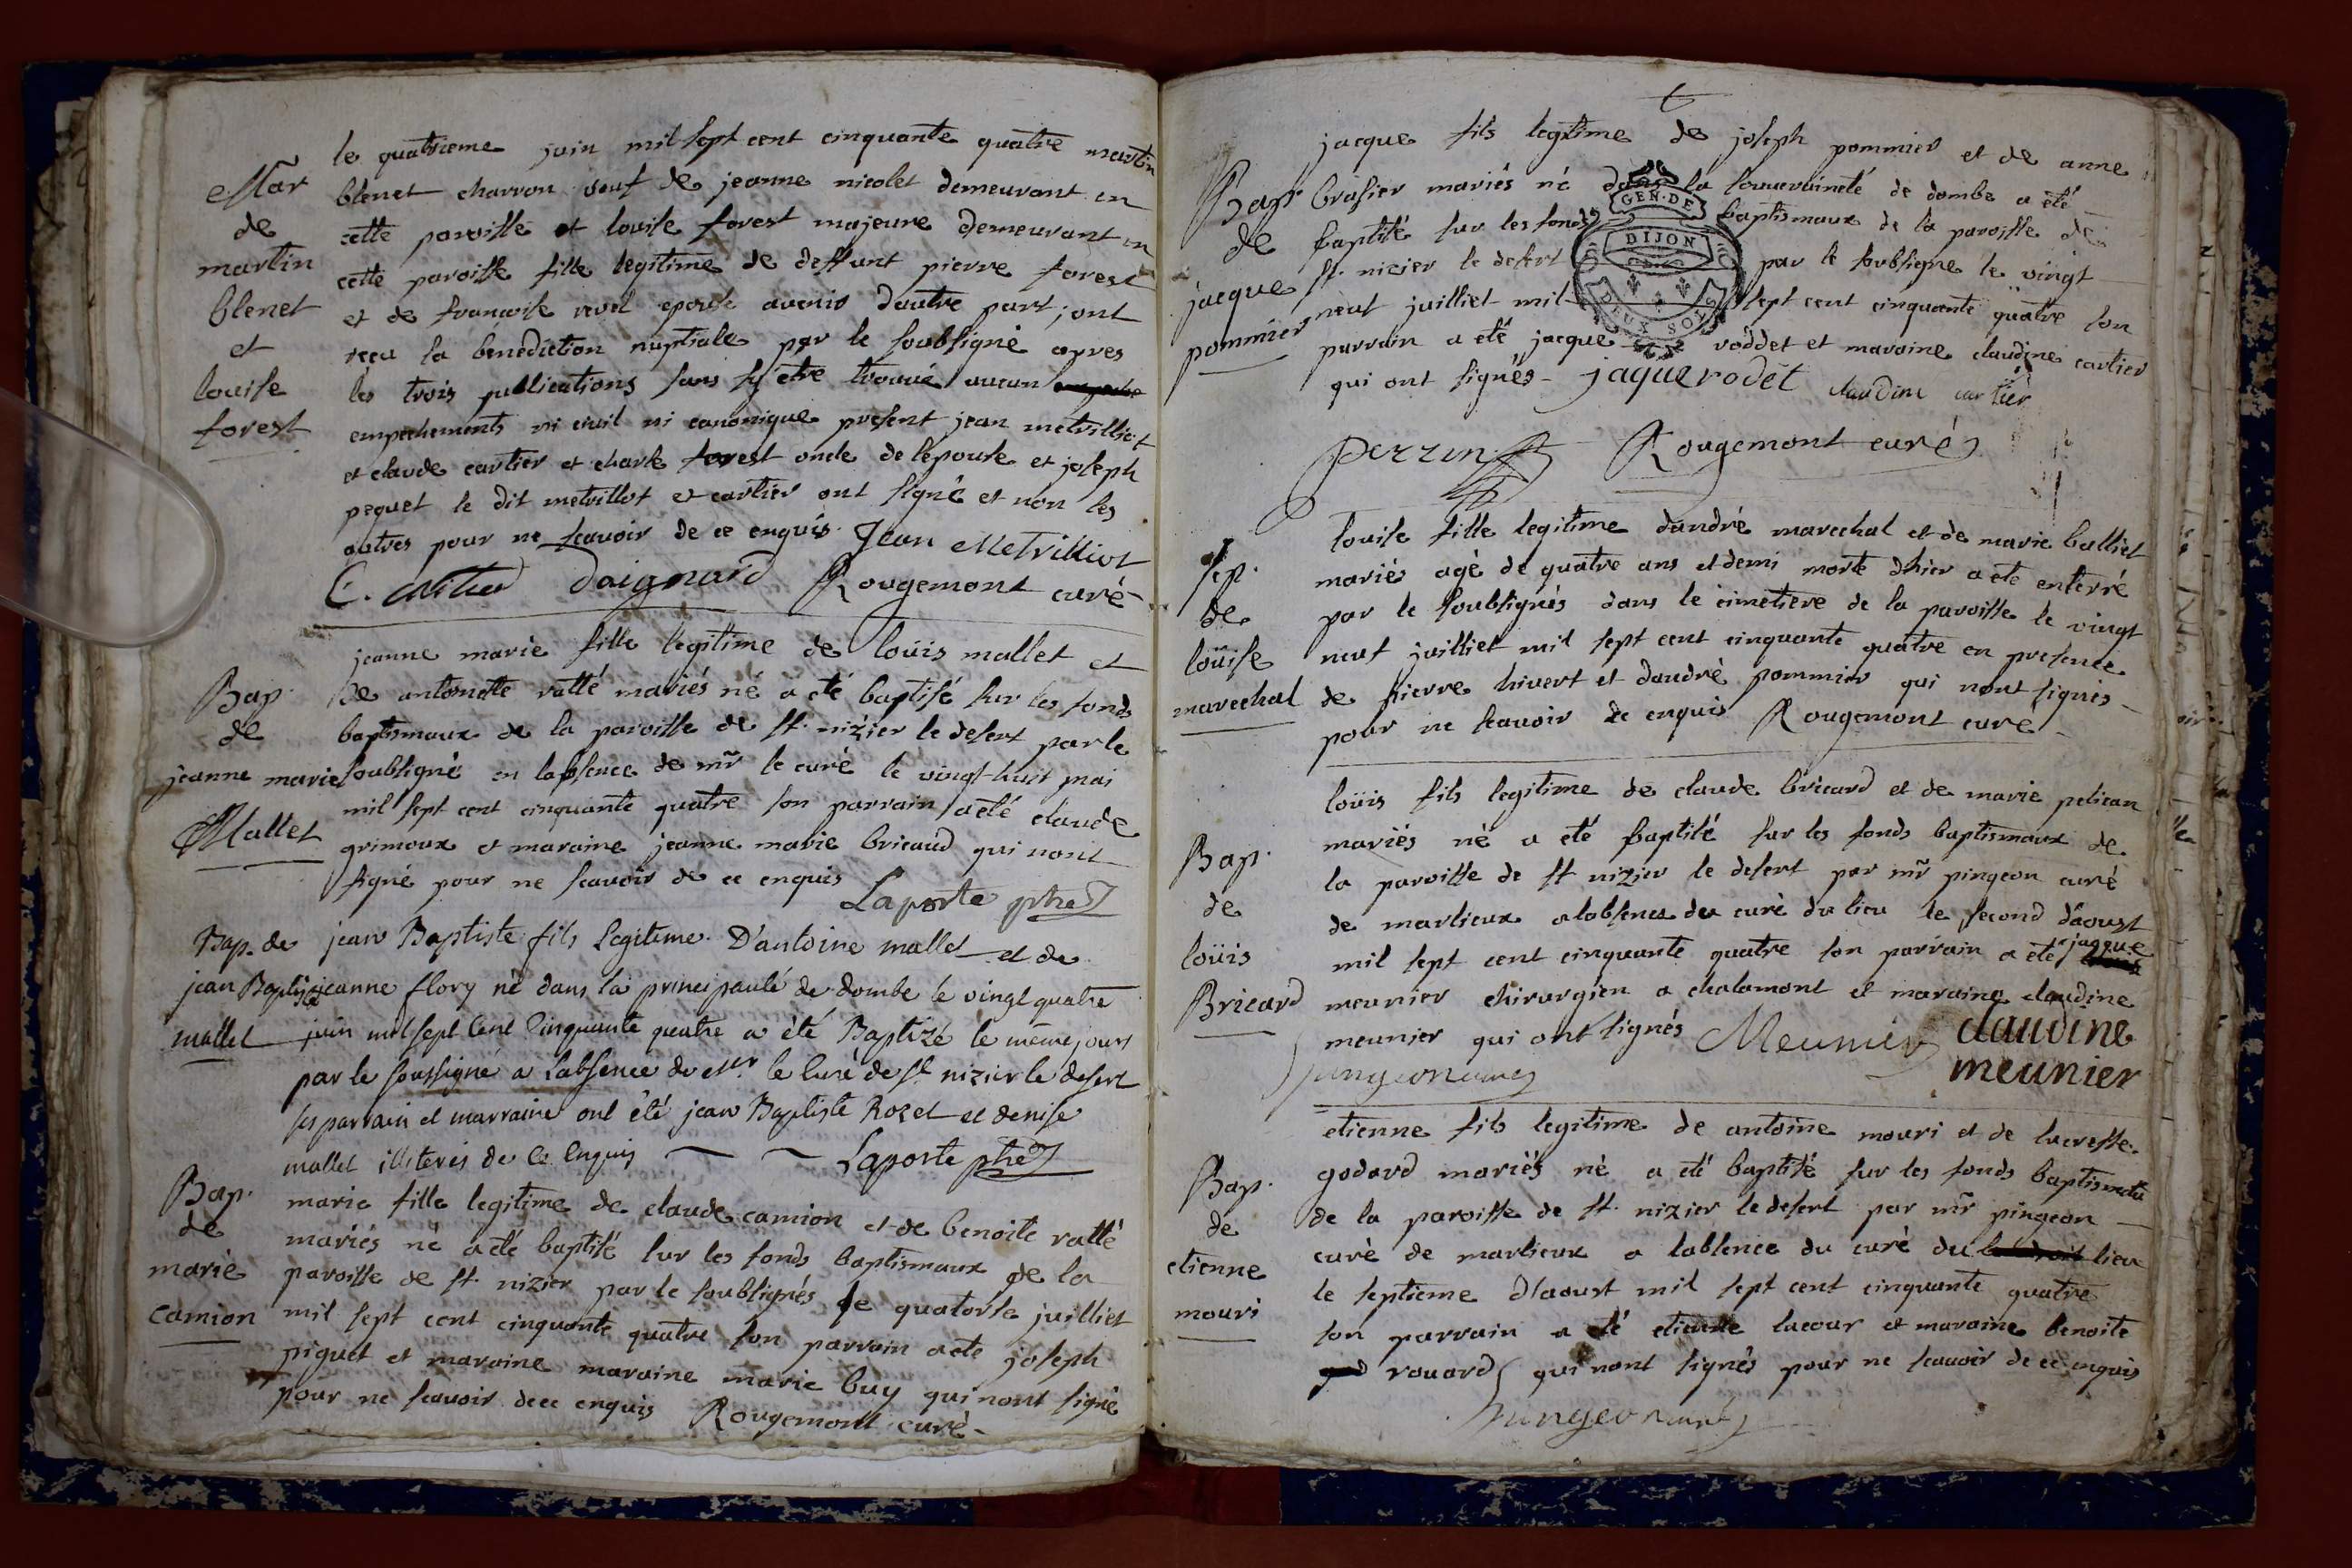 Mar
de
martin
blenet
et
louise
forest
le quatrieme juin mil sept cent cinquante quatre martin
blenet charron veuf de jeanne nicolet demeurant en
cette paroisse et louise forest majeure demeurant en
cette paroisse fille legitime de deffunt pierre forest
et de francoise revel epouse avenir dautre part; ont
recu la benediction nuptiale par le soubsigné apres
les trois publications sans sy etre trouvé aucun
empechements ni civil ni canonique present jean metrilliot
et claude cartier et charle forest oncle de lepouse et joseph
pequet le dit metrillot et cartier ont signé et non les
autres pour ne scavoir de ce enquis Jean Metrilliot
C. Daignard Rougemont curé
Bap.
de
jeanne marie
Mallet
jeanne marie fille legitime de loüis mallet et
de antoinette ratté mariés né a eté baptisé sur les fonds
baptismaux de la paroisse de st. nizier le desert par le
soubsigné en labsence de mr le curé le vingt-huit mai
mil sept cent cinquante quatre son parrain a eté claude
grimoux et maraine jeanne marie bricaud qui nont
signé pour ne scavoir de ce enquis Laporte ptre
Bap. de
jean Baptiste
mallet
jean Baptiste fils Legitime D'antoine mallet et de
jeanne flory né dans la principauté de dombe le vingt quatre
juin mil sept Cent Cinquante quatre a été Baptizé le même jour
par le soussigné a L'absence de Mr le Curé de st nizier le desert
ses parrain et marraine ont été jean Baptiste Rozet et denise
mallet illiterés de Ce Enquis Laporte ptre
Bap.
de
marie
Camion
marie fille legitime de claude camion et de benoite ratté
mariés né a eté baptisé sur les fonds baptismaux de la
paroisse de st. nizier par le soubsignés le quatorse juilliet
mil sept cent cinquante quatre son parrain a ete joseph
piquet et maraine maraine marie buy qui nont signé
pour ne scavoir de ce enquis Rougemont curé
Bap
de
jacque
pommier
jacque fils legitime de joseph pommier et de anne
brasier mariés né dans la souveraineté de dombe a été
baptisé sur les fonds baptismaux de la paroisse de
st. nizier le desert par le soubsigne le vingt
neuf juilliet mil sept cent cinquante quatre son
parrain a eté jacque roddet et maraine claudine cartier
qui ont signés jaque rodet claudine cartier
GEN. DE
DIJON
DEUX SOLS
Perrin Rougemont curé
sep.
de
loüise
marechal
louise fille legitime dandré marechal et de marie balliet
mariés agé de quatre ans et demi morte dhier a ete enterré
par le soubsignés dans le cimetiere de la paroisse le vingt
neuf juilliet mil sept cent cinquante quatre en presence
de pierre hivert et dandré pommier qui nont signés
pour ne scavoir de enquis Rougemont curé
Bap.
de
loüis
Bricard
loüis fils legitime de claude bricard et de marie pelican
mariés né a eté baptisé sur les fonds baptismaux de
la paroisse de st nizier le desert par mr pingeon curé
de marlieux a labsence du curé du lieu le second d'aoust
mil sept cent cinquante quatre son parrain a eté jacque
meunier chirurgien a chalamont et maraine claudine
meunier qui ont signés Meunier claudine
pingeon curé meunier
Bap.
de
etienne
mouri
etienne fils legitime de antoine mouri et de lucresse
godard mariés né a eté baptisé sur les fonds baptismaux
de la paroisse de st. nizier le desert par mr pingeon
curé de marlieux a labsence du curé du lieu
le septieme d'aoust mil sept cent cinquante quatre
son parrain a eté etienne lacour et maraine benoite
rouard qui nont signés pour ne scavoir de ce enquis
pingeon curé